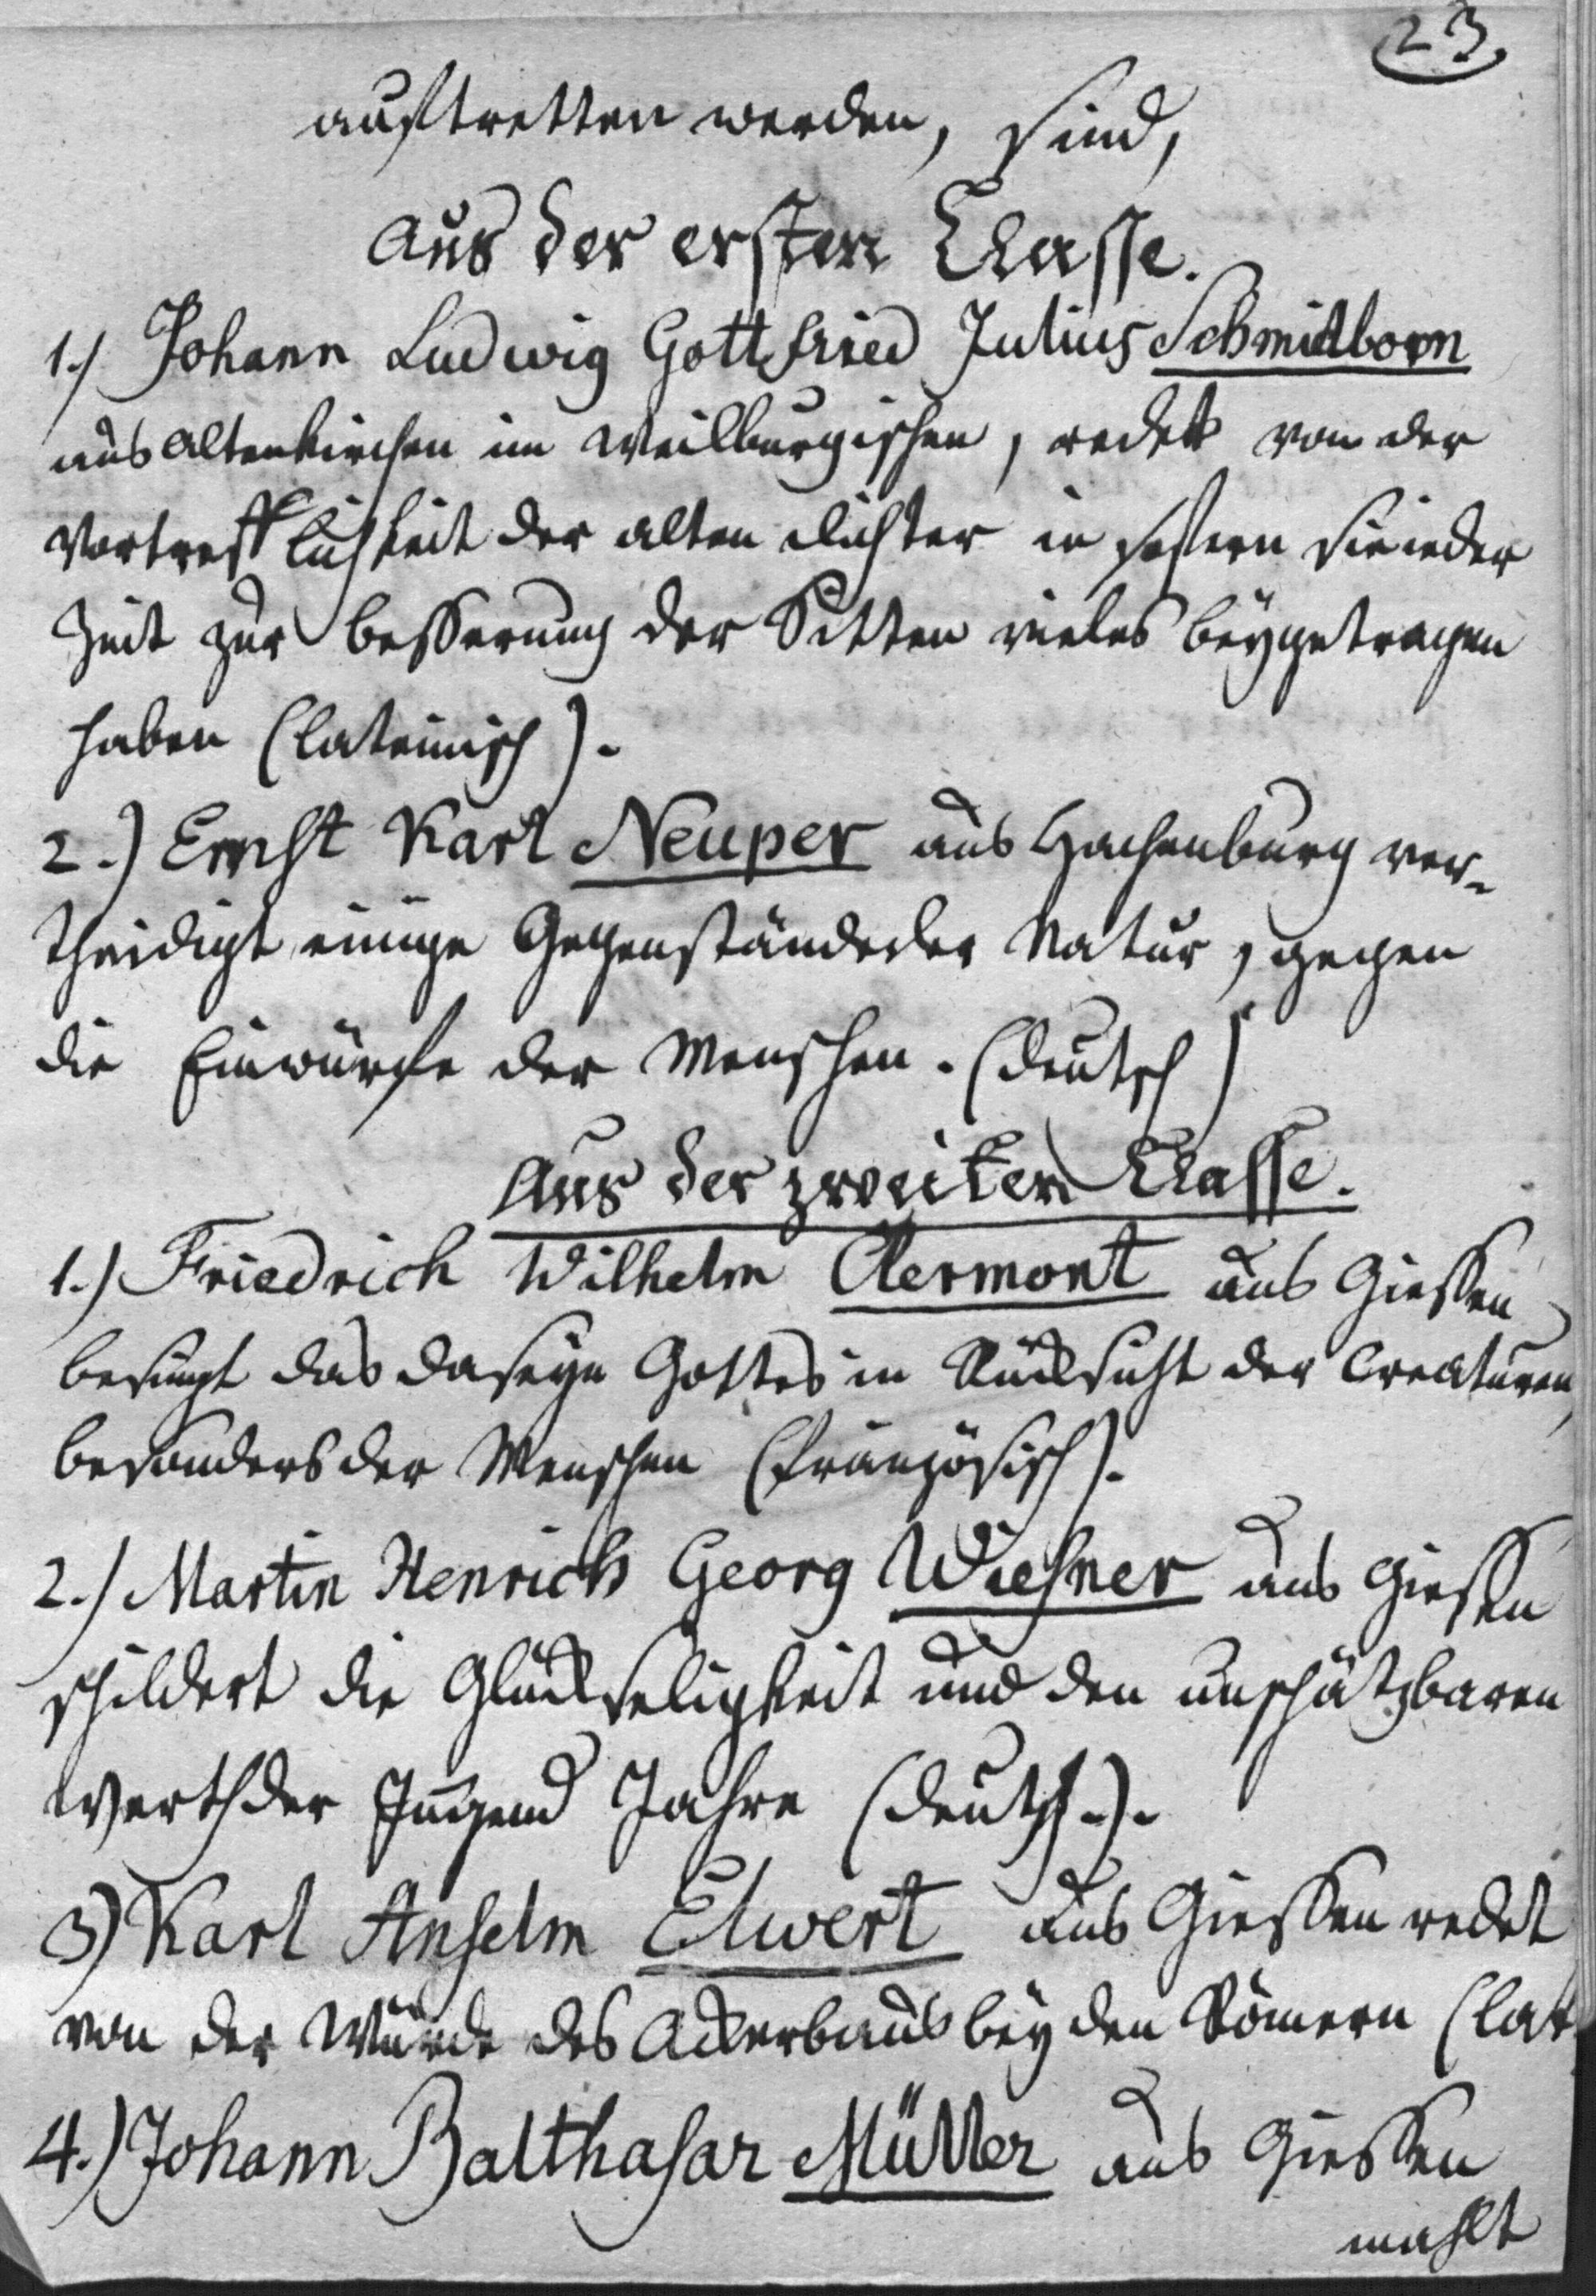 23.
auftretten werden, sind,
Aus der ersten Classe.
1.) Johann Ludwig Gottfried Julius Schmidtborn
aus Altenkirchen im Weilburgischen, redet von der
Vortrefflichkeit der alten Dichter in sofern sie ieder
Zeit zur Besserung der Sitten vieles beygetragen
haben (lateinisch).
2.) Ernst Karl Neuper aus Hachenburg ver-
theidigt einige Gegenstände der Natur, gegen
die Einwürfe der Menschen. (deutsch)
Aus der zweiten Classe.
1.) Friedrich Wilhelm Clermont aus Giessen
besingt das Daseyn Gottes in Rücksicht der Creaturen,
besonders der Menschen (französisch).
2.) Martin Henrich Georg Wiesner aus Giessen
schildert die Glückseligkeit und den unschätzbaren
Werth der Jugend Jahre (deutsch.).
3) Karl Anselm Elwert aus Giessen redet
von der Würde des Ackerbaus bey den Römern (lat
4.) Johann Balthasar Müller aus Giessen
mahlt